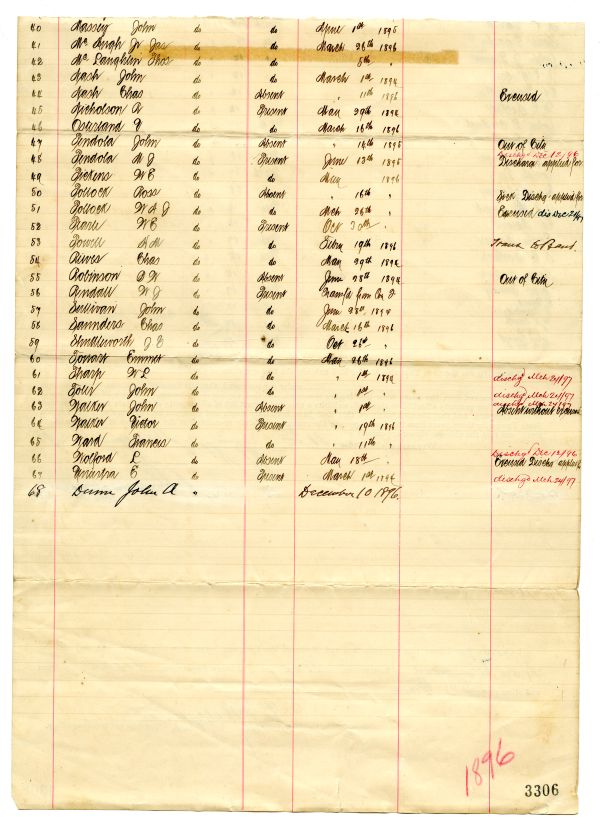 40 Massey John do do April 1st 1895
41 McHugh Jr Jas do do March 26th 1896
42 McLaughlin Thos do do 5th "
43 Nash John do do March 1st 1894
44 Nash Chas do Absent " 11th 1896 Excused
45 Nicholson A do Present May 29th 1894
46 do do March 16th 1896
47 Pendola John do Absent " 16th 1895 Out of City
48 Pendola M J do Present June 13th 1895 Dischg Dec 12/96 Discharge applied for
49 Pickens W E do do May 1896
50 Pollock Ross do Absent " 16th " Dischg applied for
51 Pollock W A J do do Mch 26th " Excused dis Dec
52 W E do Present Oct 30th "
53 Powell do do Feby 19th 1896
54 Chas do do May 29th 1894
55 Robinson do Absent June 28th 1894 Out of City
56 Randall W J do Present Transfer from Co F
57 Sullivan John do do June 28th 1894
58 Saunders Chas do do March 16th 1896
59 Shuttleworth J E do do Oct 26th "
60 Emmet do do May 26th 1896
61 Sharp W L do do " 1st 1894 dischgd Mch 24/97
62 John do do " 1st " dischgd Mch 24/97
63 Walker John do Absent " 1st " dischgd Mch 24/97 Absent without excuse
64 Walker Victor do Present " 19th 1896
65 Ward Francis do do " 11th "
66 Wolford L do Absent May 18th " Dischgd Dec 12/96 Excused Dischg applied
67 E do Present March 1st 1894 dischgd Mch 24/97
68 Dunn John A " December 10 1896
1896
3306